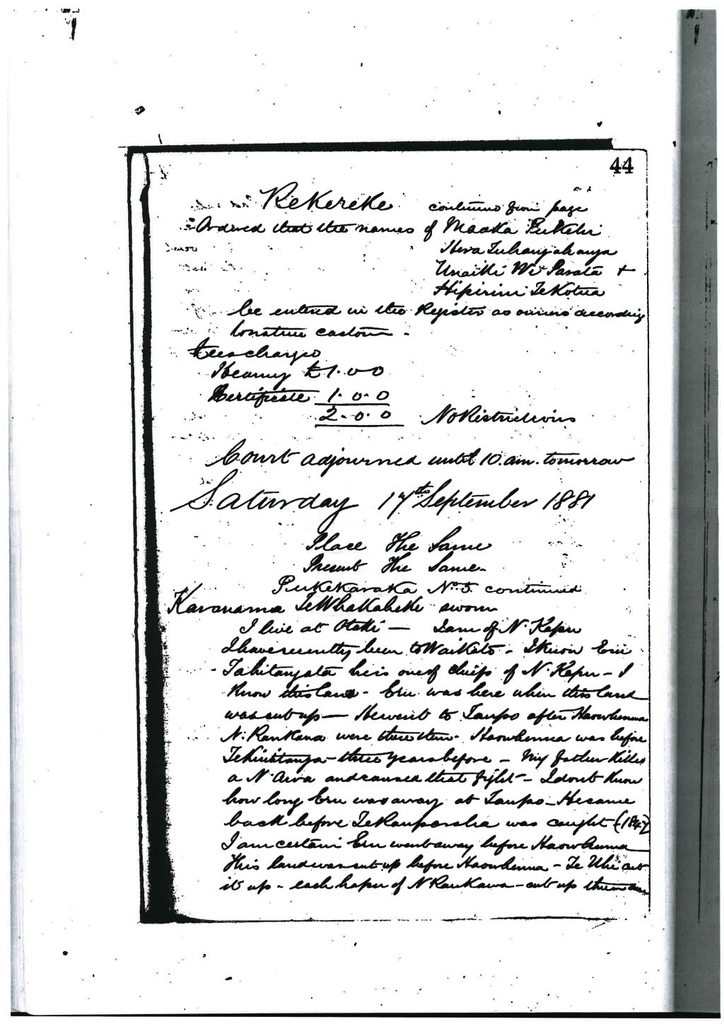 44
Rekereke continued from page
Ordered that the names of Maaka Pukehi
Hera Tuhangahanga
Unaiki Wi Parata +
Hipirini Te Kotua
be entered in the Register as owners according
to native custom -
Fees charged
Hearing £1.0.0
Certificate 1.0.0
2.0.0 No Restrictions
Court adjourned until 10. am. tomorrow
Saturday 17th September 1881
Place The Same
Present The Same
Pukekaraka No 5 continued
Karanama Te Whakaheke sworn
I live at Otaki - I am of N. Kapu
I have recently been to Waikato - I know Eru
Tahitangata he is one of chiefs of N. Kapu - I
know this land - Eru was here when this land
was cut up - He went to Taupo after Haowhenua
N. Raukawa were there then - Haowhenua was before
Te Kuititanga - three years before - My father killed
a N' Awa and caused that fight - I don't know
how long Eru was away at Taupo - He came
back before Te Rauparaha was caught
I am certain Eru went away before Haowhenua
This land was cut up before Haowhenua - Te Whi cut
it up - each hapu of N Raukawa - cut up